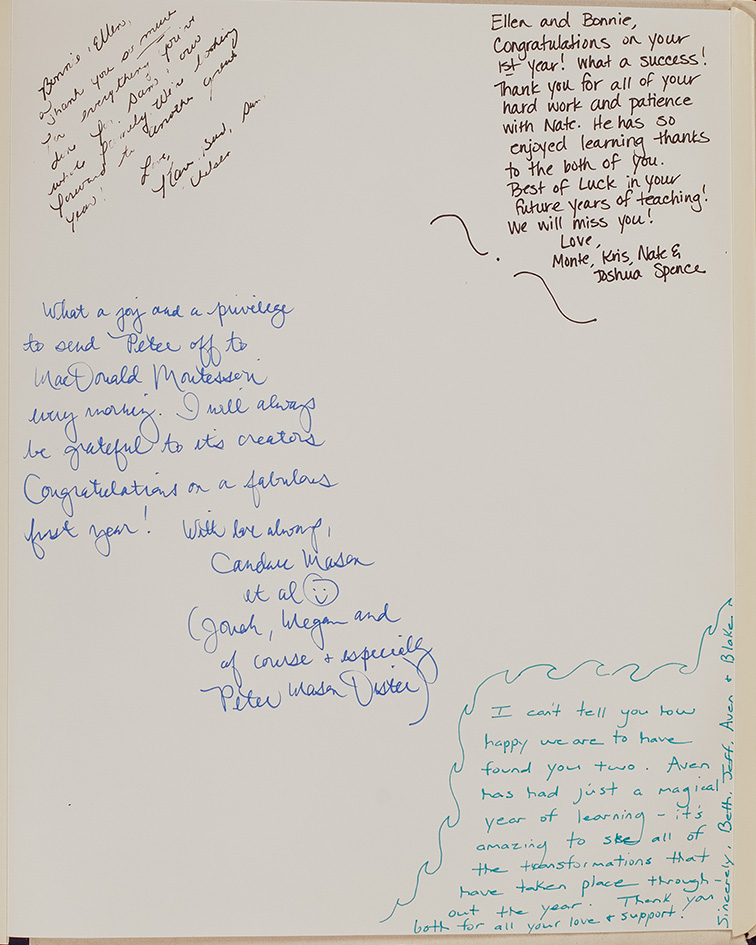 Bonnie, Ellen,
Thank you so much
for everything you've
done for Sam & our
whole family. We're looking
forward to another great
year!
Love,
Ellen and Bonnie,
Congratulations on your
1st year! What a success!
Thank you for all of your
hard work and patience
with Nate. He has so
enjoyed learning thanks
to the both of you.
Best of Luck in your
future years of teaching!
We will miss you!
Love,
Monte, Kris, Nate &
Joshua Spence
What a joy and a privilege
to send Peter off to
MacDonald Montessori
every morning. I will always
be grateful to it's creators
Congratulations on a fabulous
first year! With love always,
Candace Mason
et al ☺
(Jonah, Megan and
of course + especially
Peter Mason Dister)
I can't tell you how
happy we are to have
found you two. Aven
has had just a magical
year of learning - it's
amazing to see all of
the transformations that
have taken place through-
out the year. Thank you
both for all your love + support.
Sincerely, Beth, Jeff, Aven + Blake